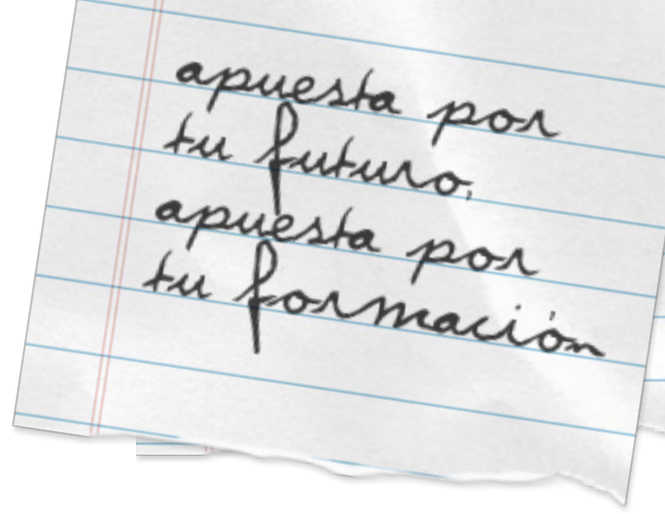 apuesta por
tu futuro,
apuesta por
tu formación